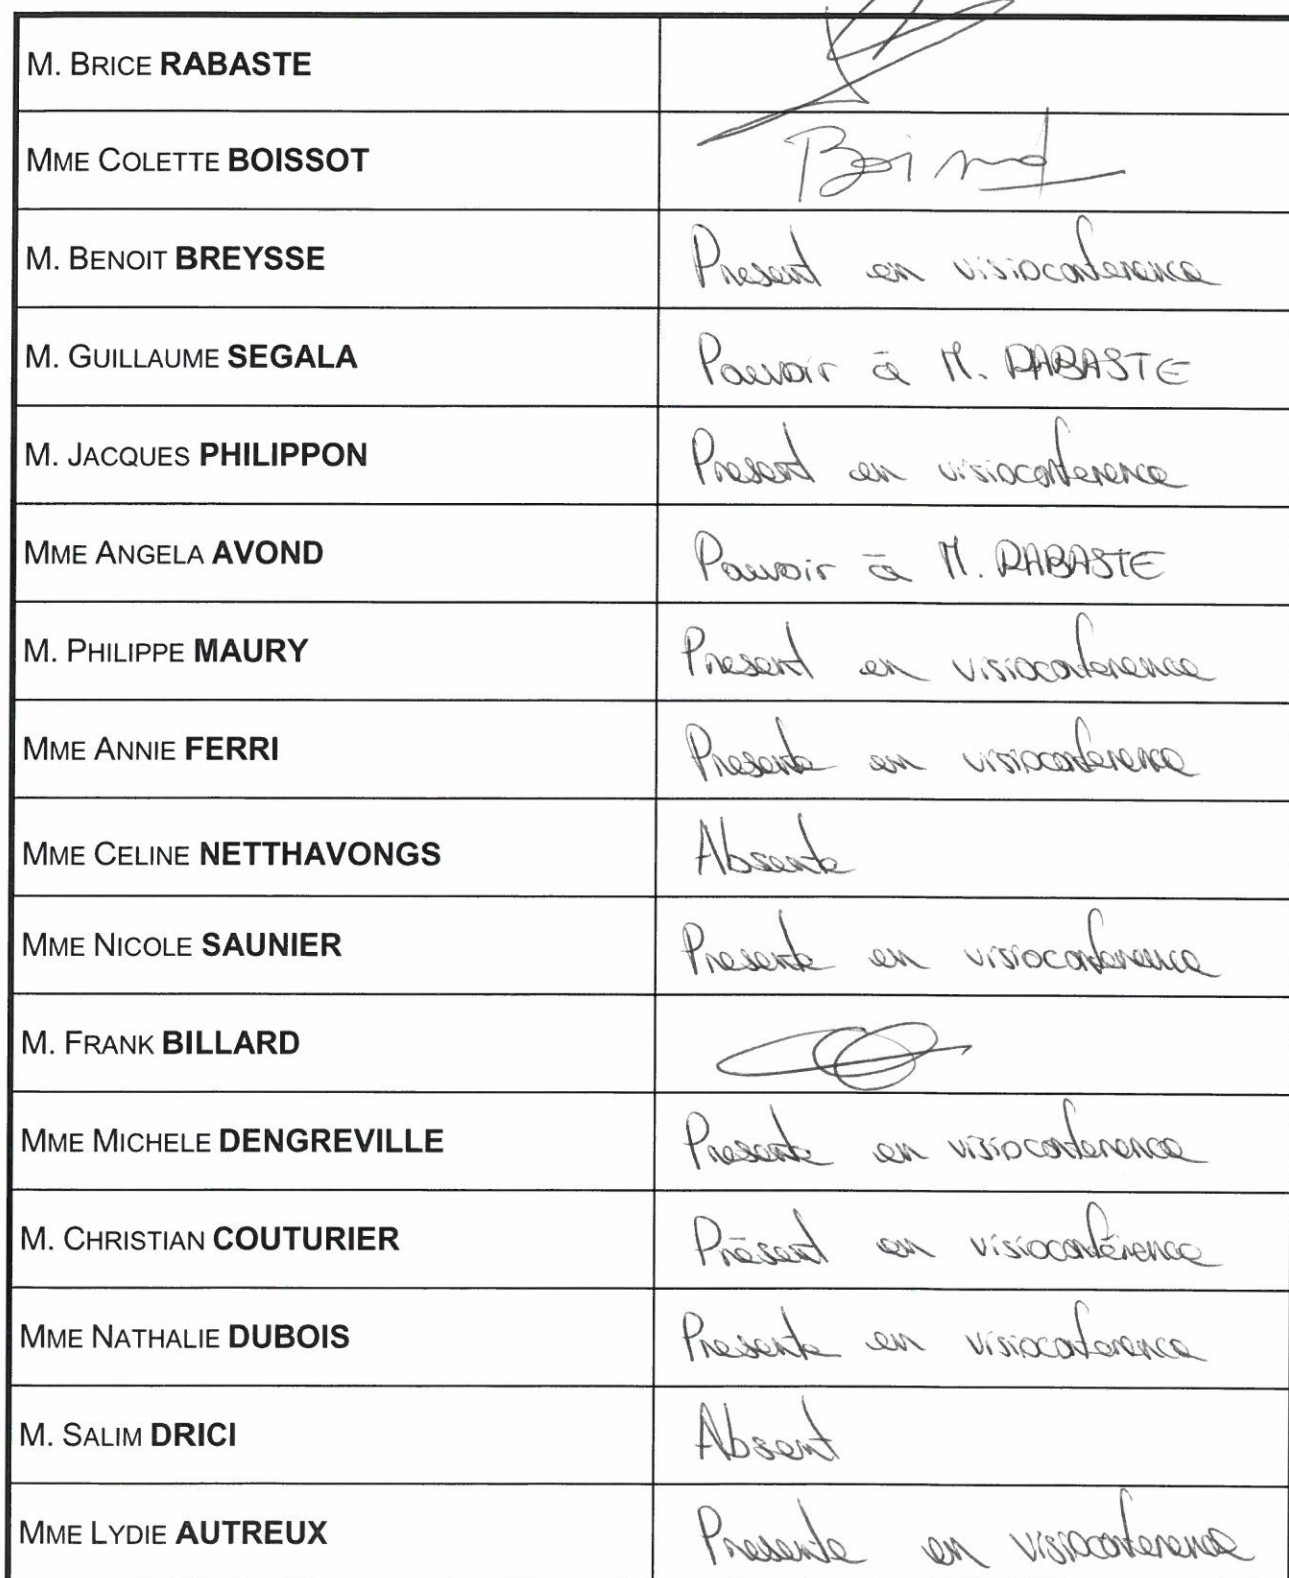 M. BRICE RABASTE
MME COLETTE BOISSOT
M. BENOIT BREYSSE Present en visioconference
M. GUILLAUME SEGALA Pouvoir à M. RABASTE
M. JACQUES PHILIPPON Present en visioconference
MME ANGELA AVOND Pouvoir à M. RABASTE
M. PHILIPPE MAURY Present en visioconference
MME ANNIE FERRI Presente en visioconference
MME CELINE NETTHAVONGS Absente
MME NICOLE SAUNIER Presente en visioconference
M. FRANK BILLARD
MME MICHELE DENGREVILLE Presente en visioconference
M. CHRISTIAN COUTURIER Présent en visioconférence
MME NATHALIE DUBOIS Presente en visioconference
M. SALIM DRICI Absent
MME LYDIE AUTREUX Presente en visioconference